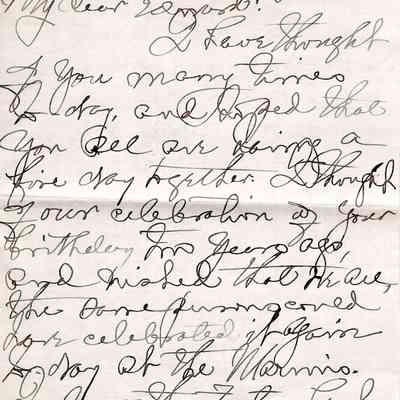 My dear
I have thought
of you many times
to day, and hoped that
you all are having a
fine day together. I thought
of your celebration of your
birthday two years ago,
and wished that we all,
the same persons could
have celebrated it again
to day at the